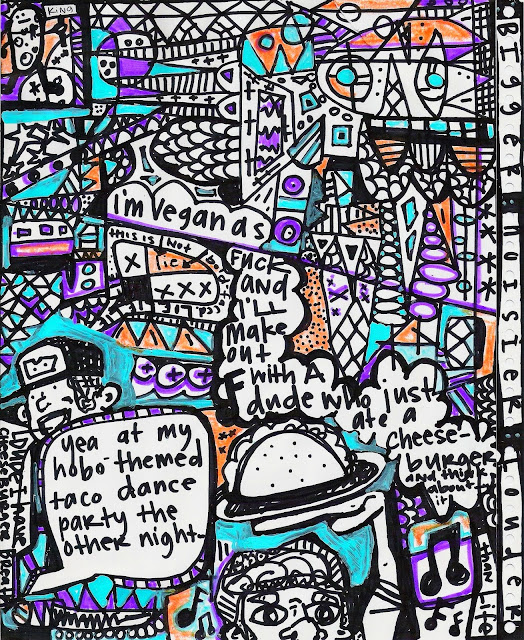 KiNg
im vegan as
FUCK
and
i'LL
make
out
with A
dude who just
ate a
cheese-
burger
and think
about
it
this is Not
yea at my
hobo-themed
taco dance
party the
other night-
DUDE I HAVE
CHEESEBURGER BREATH
A BIGGER NOISIER LOUDER